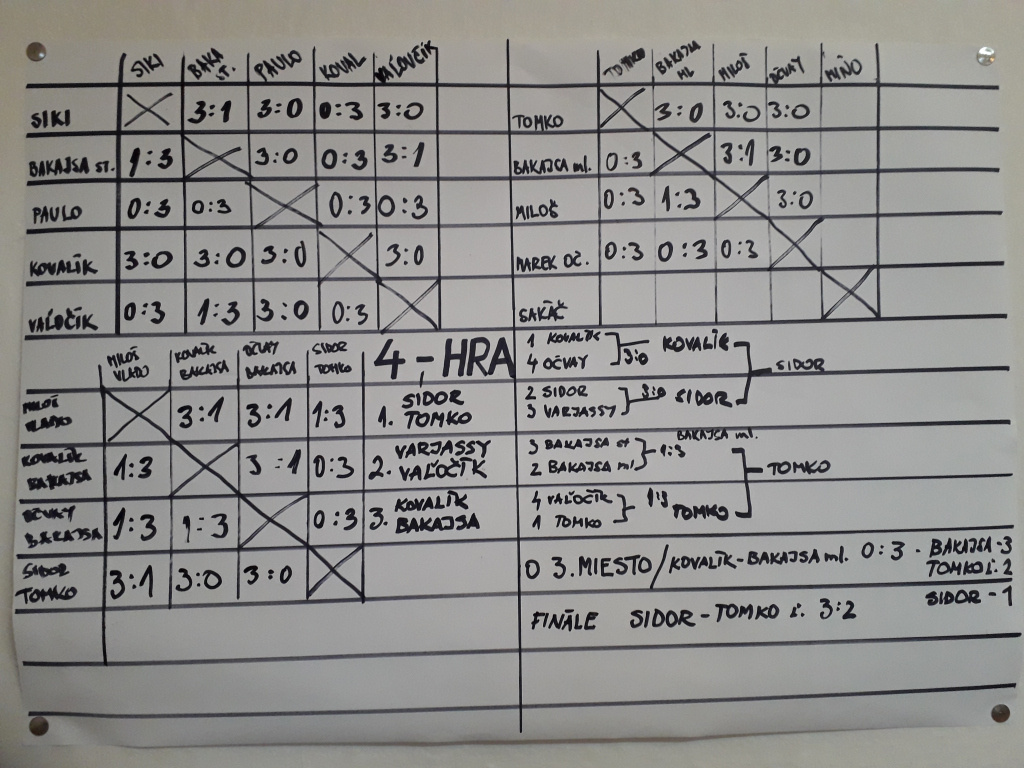 SIKI BAKA ST. PAULO KOVAL VAĽOVČÍK
SIKI 3:1 3:0 0:3 3:0
BAKAJSA ST. 1:3 3:0 0:3 3:1
PAULO 0:3 0:3 0:3 0:3
KOVALÍK 3:0 3:0 3:0 3:0
VAĽOČÍK 0:3 1:3 3:0 0:3
TOMKO BAKAJSA ML MILOŠ OČVAY MIŇO
TOMKO 3:0 3:0 3:0
BAKAJSA ml. 0:3 3:1 3:0
MILOŠ 0:3 1:3 3:0
MAREK OČ. 0:3 0:3 0:3
SAKÁČ
MILOŠ VLADO KOVALÍK BAKAJSA OČVAY BAKAJSA SIDOR TOMKO
4-HRA
MILOŠ VLADO 3:1 3:1 1:3
KOVALÍK BAKAJSA 1:3 3:1 0:3
OČVAY BAKAJSA 1:3 1:3 0:3
SIDOR TOMKO 3:1 3:0 3:0
1. SIDOR TOMKO
2. VARJASSY VAĽOČÍK
3. KOVALÍK BAKAJSA
1 KOVALÍK
4 OČVAY 3:0 KOVALÍK
SIDOR
2 SIDOR
3 VARJASSY 3:0 SIDOR
3 BAKAJSA st
2 BAKAJSA ml. 1:3 BAKAJSA ml.
TOMKO
4 VAĽOČÍK
1 TOMKO 1:3 TOMKO
O 3. MIESTO/KOVALÍK-BAKAJSA ml. 0:3 - BAKAJSA-3
TOMKO Ľ. 2
SIDOR - 1
FINÁLE SIDOR-TOMKO Ľ. 3:2